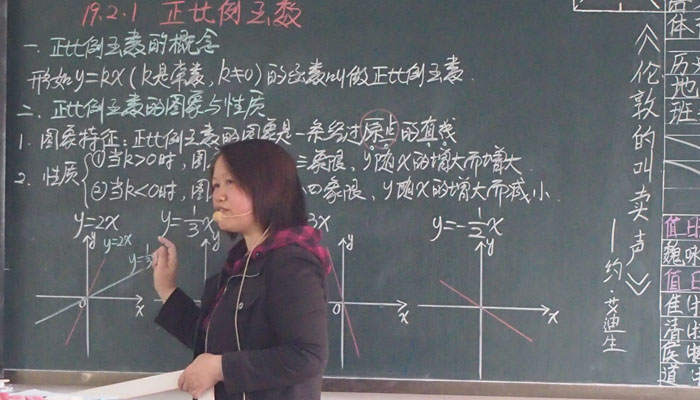 19.2.1 正比例函数
一.正比例函数的概念
形如y=kx(k是常数,k≠0)的函数叫做正比例函数.
二.正比例函数的图象与性质
1.图象特征:正比例函数的图象是一条经过原点的直线
2.性质
①当k>0时,图 三象限,y随x的增大而增大
②当k<0时,图 四象限,y随x的增大而减小.
y=2x
y=1/3x
3x
y=-1/3x
y
y=2x
y=1/3
0
x
y
y
x
y
x
《伦敦的叫卖声》
—约.艾迪生
体
历
地
班
值日
魏
值日
佳
清
道